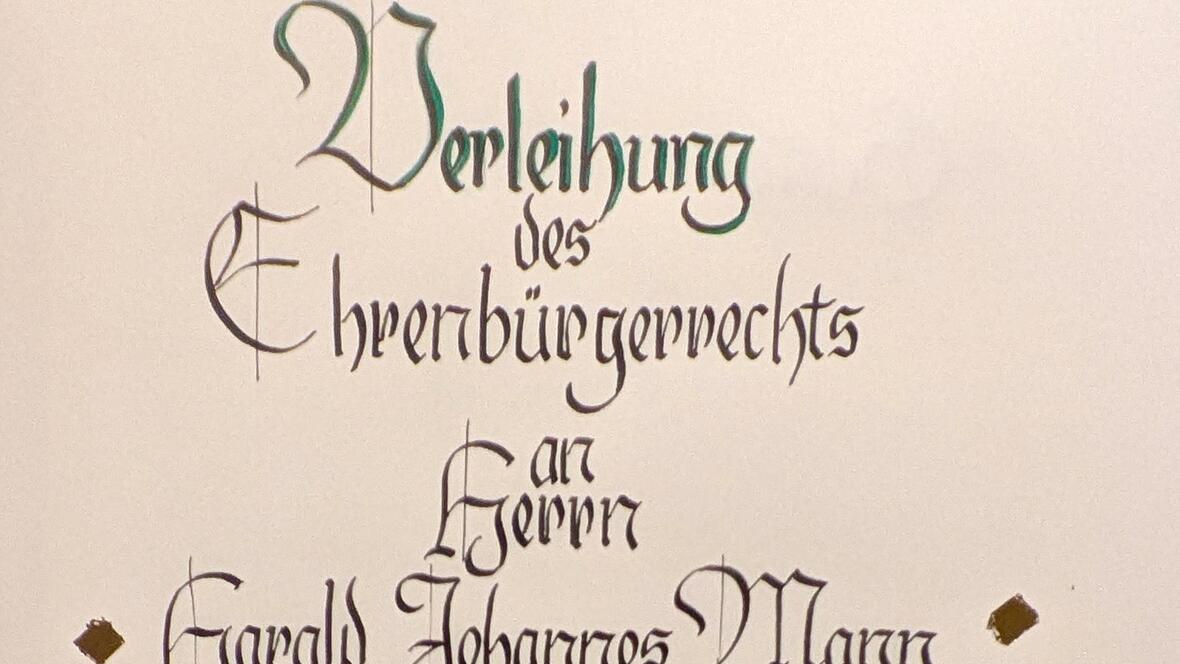 Verleihung
des
Ehrenbürgerrechts
an
Herrn
Harald Johannes Mann